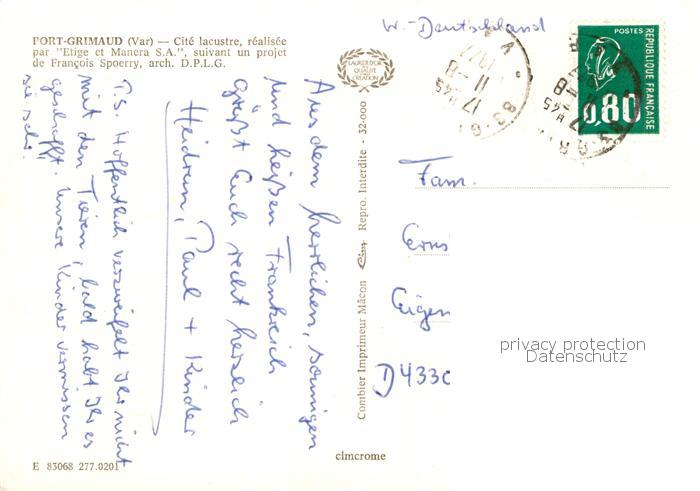 PORT-GRIMAUD (Var) — Cité lacustre, réalisée
par "Etige et Manera S.A.", suivant un projet
de François Spoerry, arch. D.P.L.G.
LAURIER D'OR
DE LA
QUALITÉ
DE
CRÉATION
W.-Deutschland
17 H45
11 -8
1977
83
POSTES
REPUBLIQUE FRANÇAISE
0,80
Aus dem herrlichen, sonnigen
und heißen Frankreich
grüßt Euch recht herzlich
Heidrun, Paul + Kinder
P.S. Hoffentlich verzweifelt Ihr nicht
mit den Tieren, bald habt Ihr es
geschafft. Unsere Kinder vermissen
sie sehr.
Combier Imprimeur Mâcon
Cim
Repro. Interdite - 32-000
Fam.
D 433
privacy protection
Datenschutz
cimcrome
E 83068 277.0201